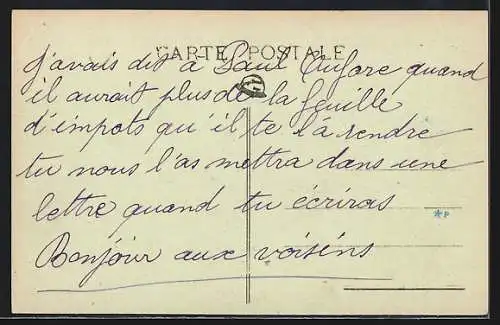 CARTE POSTALE
j'avais dit a Paul quand
il aurait plus de la feuille
d'impots qu'il te l'a rendre
tu nous l'as mettra dans une
lettre quand tu écriras
*P
Bonjour aux voisins